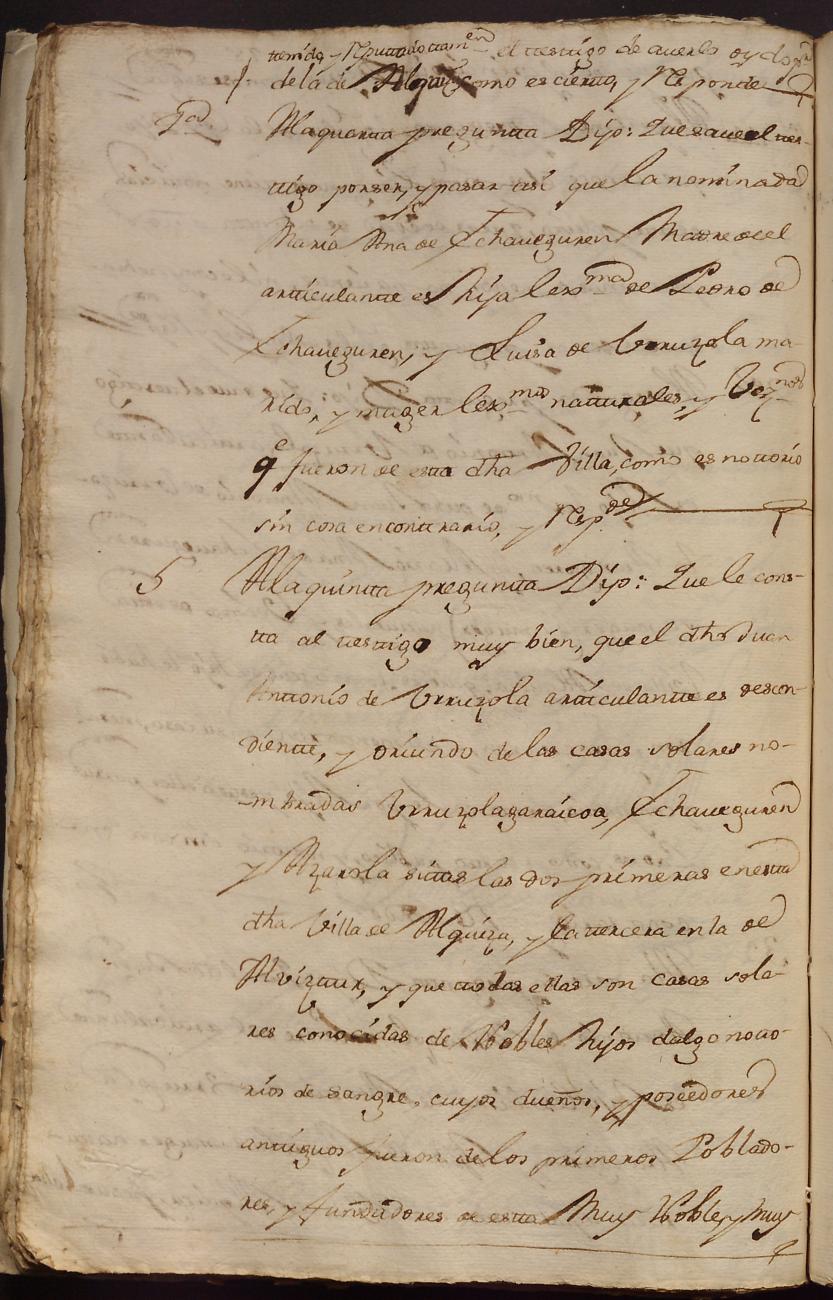 ttenido y rreputtado ttamen el ttesttigo de averlo oydo
de la de Alquiza como es cierto, y Responde
4a
A la quartta preguntta Dijo: Que save el ttes-
ttigo por ser, y pasar assi que la nominada
Maria Ana de Echaveguren Madre de el
artticulantte es hija lexma de Pedro de
Echaveguren, y Luisa de Urruzola ma-
rido, y muger lexmos natturales, y Veznos
qe fueron de estta dha Villa, como es nottorio
sin cosa en conttrario, y Respde
5
A la quintta preguntta Dijo: Que le cons-
tta al ttesttigo muy bien, que el dho Juan
Anttonio de Urruzola artticulantte es descen-
dientte, y oriundo de las casas solares no-
mbradas Urruzolagaraicoa, Echaveguren
y Azarola sittas las dos primeras en estta
dha Villa de Alquiza, y la ttercera en la de
Alviztur, y que ttodas ellas son casas sola-
res conocidas de Nobles hijos dalgo notto-
rios de sangre, cuyos dueños, y poseedores
anttiguos fueron de los primeros Poblado-
res, y fundadores de estta Muy Noble, y Muy